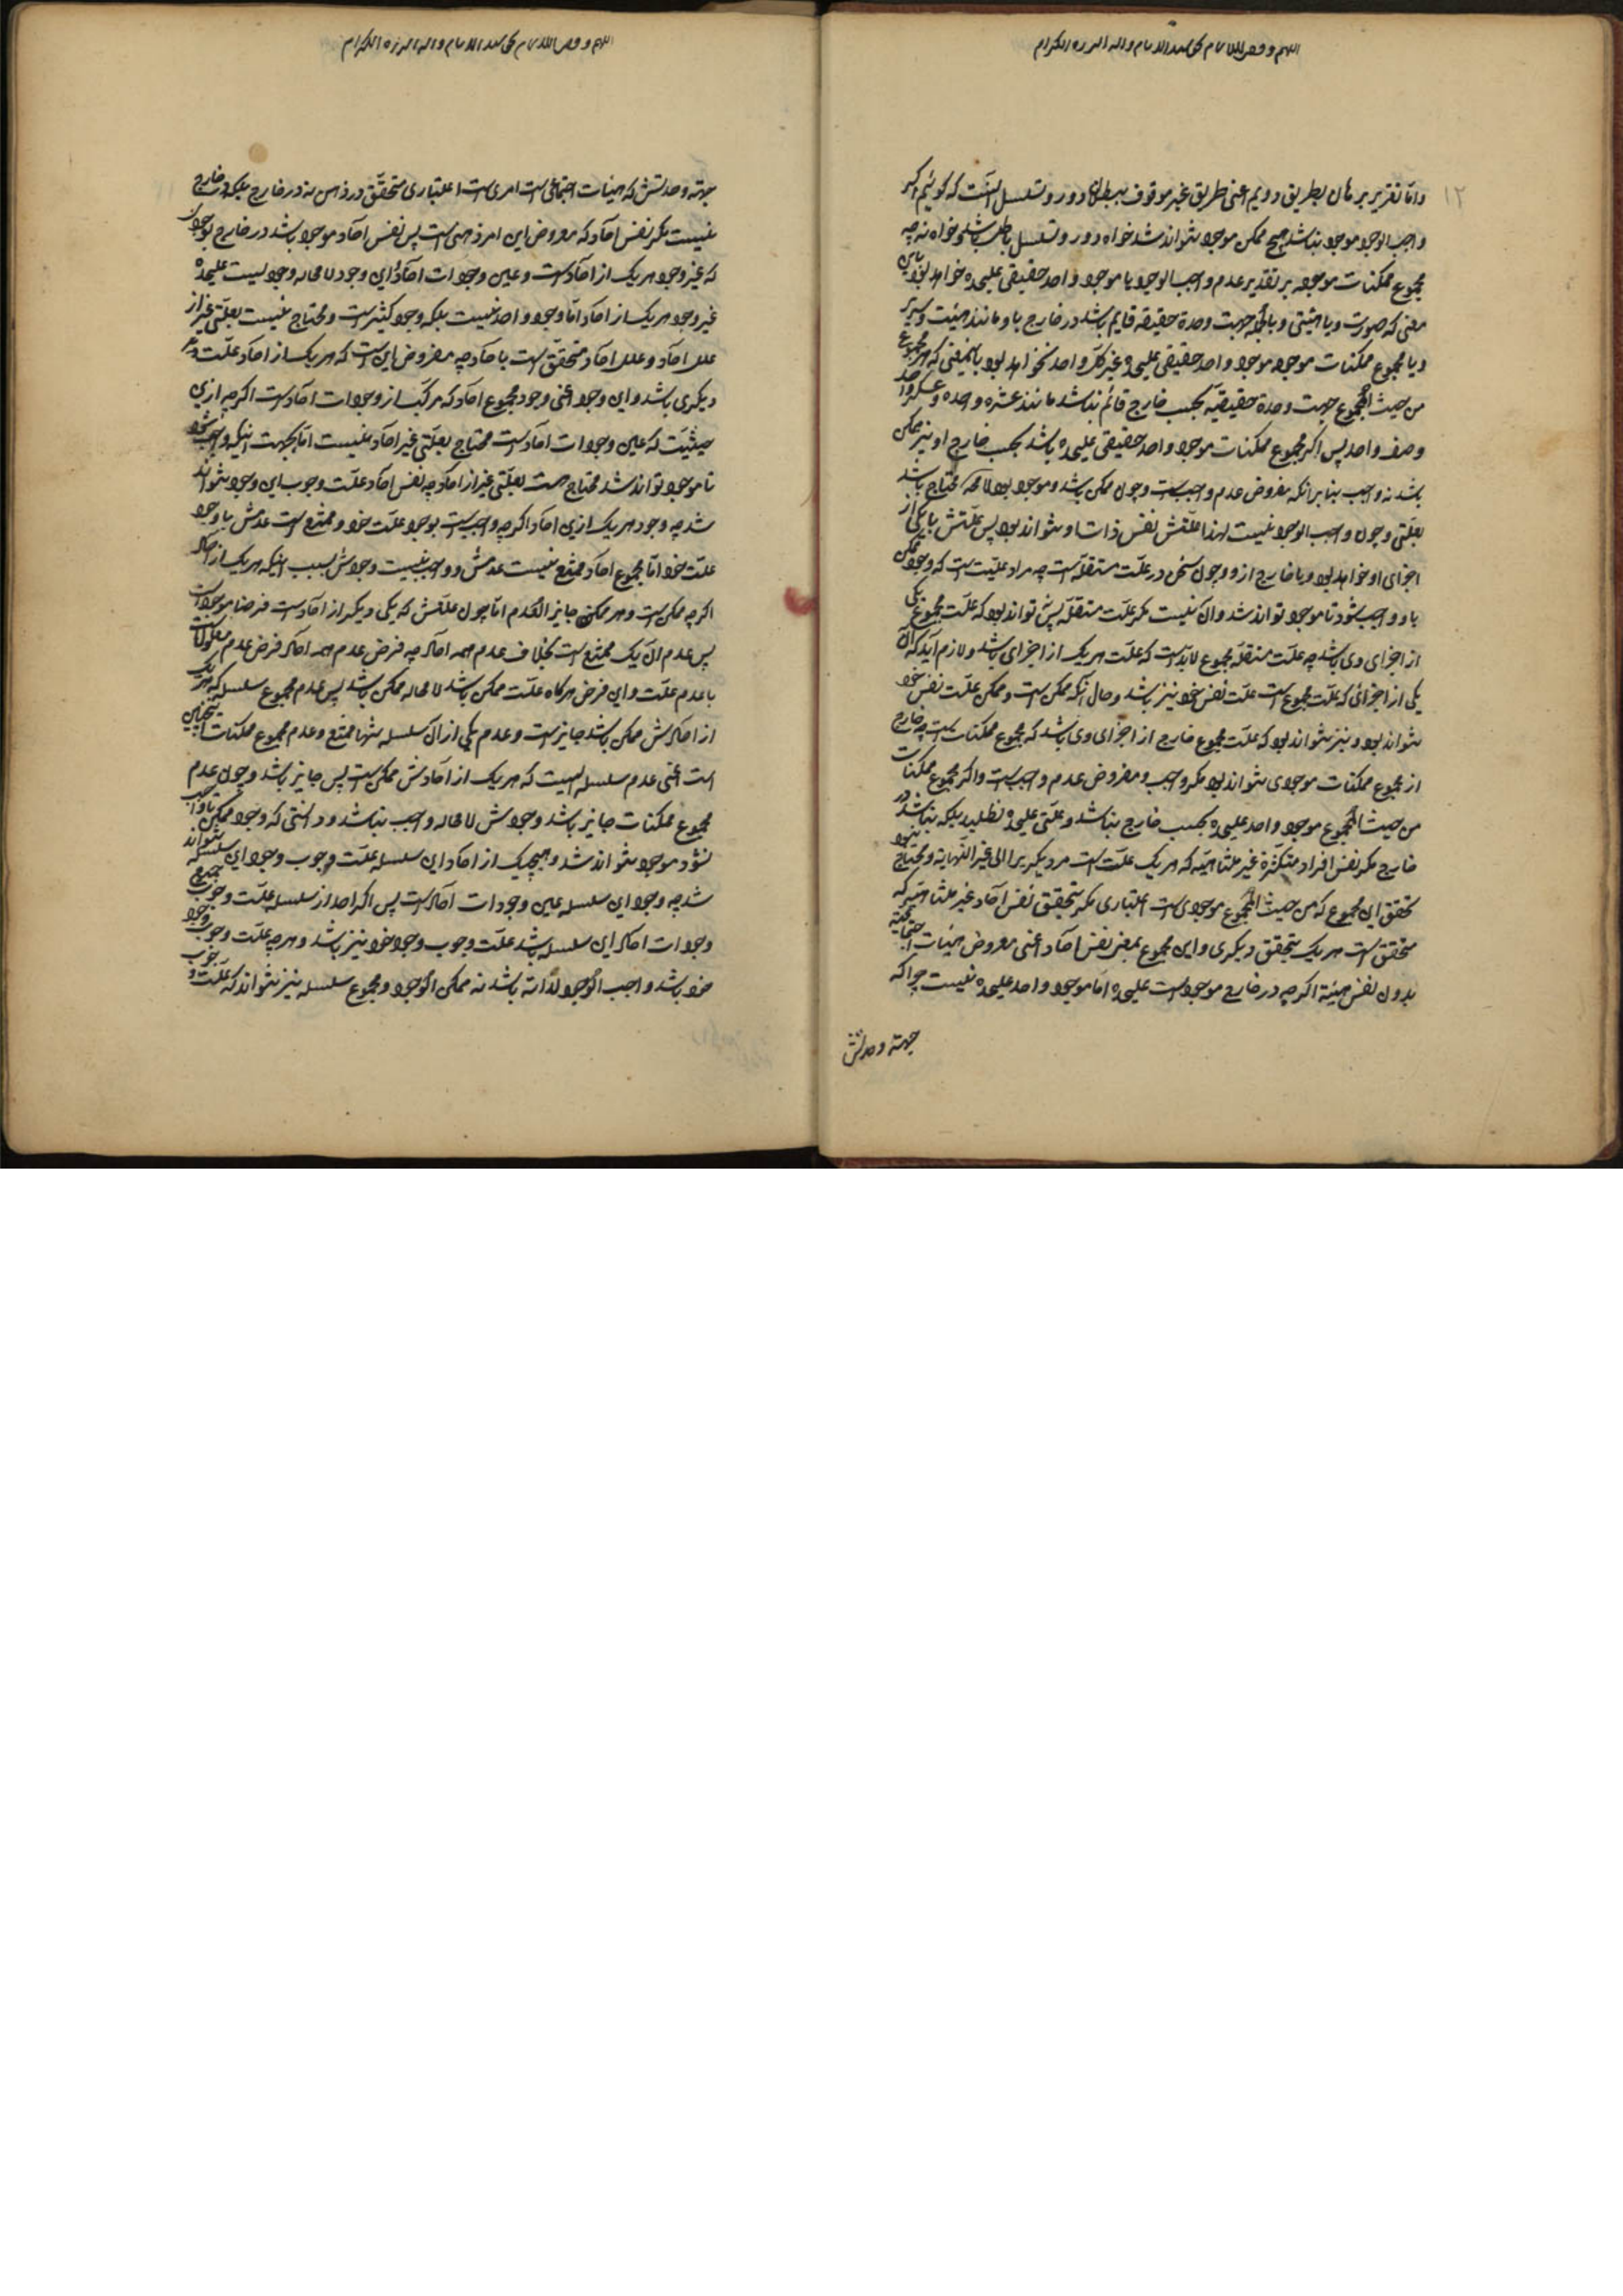 ۱۲
واما تقریر برهان بطریق دویم اعنی طریق غیر موقوف ببطلان دور و تسلسل آنست که گوئیم اگر
واجب الوجود موجود نباشد هیچ ممکن موجود نتواند شد خواه دور و تسلسل باطل باشد و خواه نه چه
مجموع ممکنات موجوده بر تقدیر عدم واجب الوجود یا موجود واحد حقیقی علیحده خواهد بود باین
معنی که صورت و یا هیئتی و بالجمله جهت وحدة حقیقیه قایم باشد در خارج باو مانند هیئت سریر
و یا مجموع ممکنات موجوده موجود واحد حقیقی علیحده غیر کل واحد نخواهد بود باینمعنی که مجموع
من حیث المجموع جهت وحدة حقیقیه بحسب خارج قائم نباشد مانند عشره واحده و عسکر واحد
وصف واحد پس اگر مجموع ممکنات موجود واحد حقیقی علیحده باشد بحسب خارج او نیز ممکن
باشد نه واجب بنا بر آنکه مفروض عدم واجبست و چون ممکن باشد و موجود بود لا محاله محتاج باشد
بعلتی و چون واجب الوجود نیست لهذا علتش نفس ذات او نتواند بود پس علتش یا یکی از
اجزای او خواهد بود و یا خارج ازو و چون سخن در علت مستقله است چه مراد علتیست که وجود ممکن
باو واجب شود تا موجود تواند شد و آن نیست مگر علت مستقله پس نتواند بود که علت مجموع یکی
از اجزای وی باشد چه علت مستقله مجموع لابد است که علت هر یک از اجزای باشد و لازم آید که آن
یکی از اجزائی که علت مجموع است علت نفس خود نیز باشد و حال آنکه ممکن است و ممکن علت نفس خود
نتواند بود و نیز نتواند بود که علت مجموع خارج از اجزای وی باشد که مجموع ممکنات است چه خارج
از مجموع ممکنات موجودی نتواند بود مگر واجب و مفروض عدم واجب است و اگر مجموع ممکنات
من حیث المجموع موجود واحد علیحده بحسب خارج نباشد و علتی علیحده نطلبد بلکه نباشد در
خارج مگر نفس افراد متکثرة غیر متناهیه که هر یک علت است مر دیگریرا الی غیر النهایة و محتاج نبود
تحقق این مجموع که من حیث المجموع موجودیست اعتباری مگر بتحقق نفس آحاد غیر متناهیه که
متحقق است هر یک بتحقق دیگری و این مجموع بمعنی نفس آحاد اعنی معروض هیئات اجتماعیه
بدون نفس هیئة اگرچه در خارج موجود است علیحده اما موجود واحد علیحده نیست چرا که
جهة وحدتش
جهة وحدتش که هیئات اجتماعی است امری است اعتباری متحقق در ذهن نه در خارج بلکه در خارج
نیست مگر نفس آحاد که معروض این امر ذهنی است پس نفس آحاد موجود باشد در خارج بوجودی
که غیر وجود هر یک از آحاد است و عین وجودات آحاد و این وجود لا محاله وجودیست علیحده
غیر وجود هر یک از آحاد اما وجود واحد نیست بلکه وجود کثیر است و محتاج نیست بعلتی غیر از
علل آحاد و علل آحاد متحقق است با آحاد چه مفروض این است که هر یک از آحاد علت
دیگری باشد و این وجود اعنی وجود مجموع آحاد که مرکب از وجودات آحاد است اگرچه ازین
حیثیت که عین وجودات آحاد است محتاج بعلتی غیر آحاد نیست اما بجهت اینکه واجب شود
تا موجود تواند شد محتاج است بعلتی غیر از آحاد چه نفس آحاد علت وجوب این وجود نتواند
شد چه وجود هر یک ازین آحاد اگرچه واجبست بوجود علت خود و ممتنع است عدمش با وجود
علت خود اما مجموع آحاد ممتنع نیست عدمش و واجب نیست وجودش بسبب اینکه هر یک از آحاد
اگرچه ممکن است و هر ممکن جایز العدم اما چون علتش که یکی دیگر از آحاد است فرضا موجود است
پس عدم آن یک ممتنع است بخلاف عدم همه آحاد چه فرض عدم همه آحاد فرض عدم معلولات
با عدم علت و این فرض هرگاه علت ممکن باشد لا محاله ممکن باشد پس عدم مجموع سلسله که هر یک
از آحادش ممکن باشد جایز است و عدم یکی از آن سلسله تنها ممتنع و عدم مجموع ممکنات همچنین
است اعنی عدم سلسله ایست که هر یک از آحادش ممکن است پس جایز باشد و چون عدم
مجموع ممکنات جایز باشد وجودش لا محاله واجب نباشد و دانستی که وجود ممکن تا واجب
نشود موجود نتواند شد و هیچیک از آحاد این سلسله علت وجوب وجود این سلسله نتواند
شد چه وجود این سلسله عین وجودات آحاد است پس اگر احد از سلسله علت وجوب جمیع
وجودات آحاد این سلسله باشد علت وجوب وجود خود نیز باشد و هر چه علت وجوب وجود
خود باشد واجب الوجود لذاته باشد نه ممکن الوجود و مجموع سلسله نیز نتواند که علت وجوب